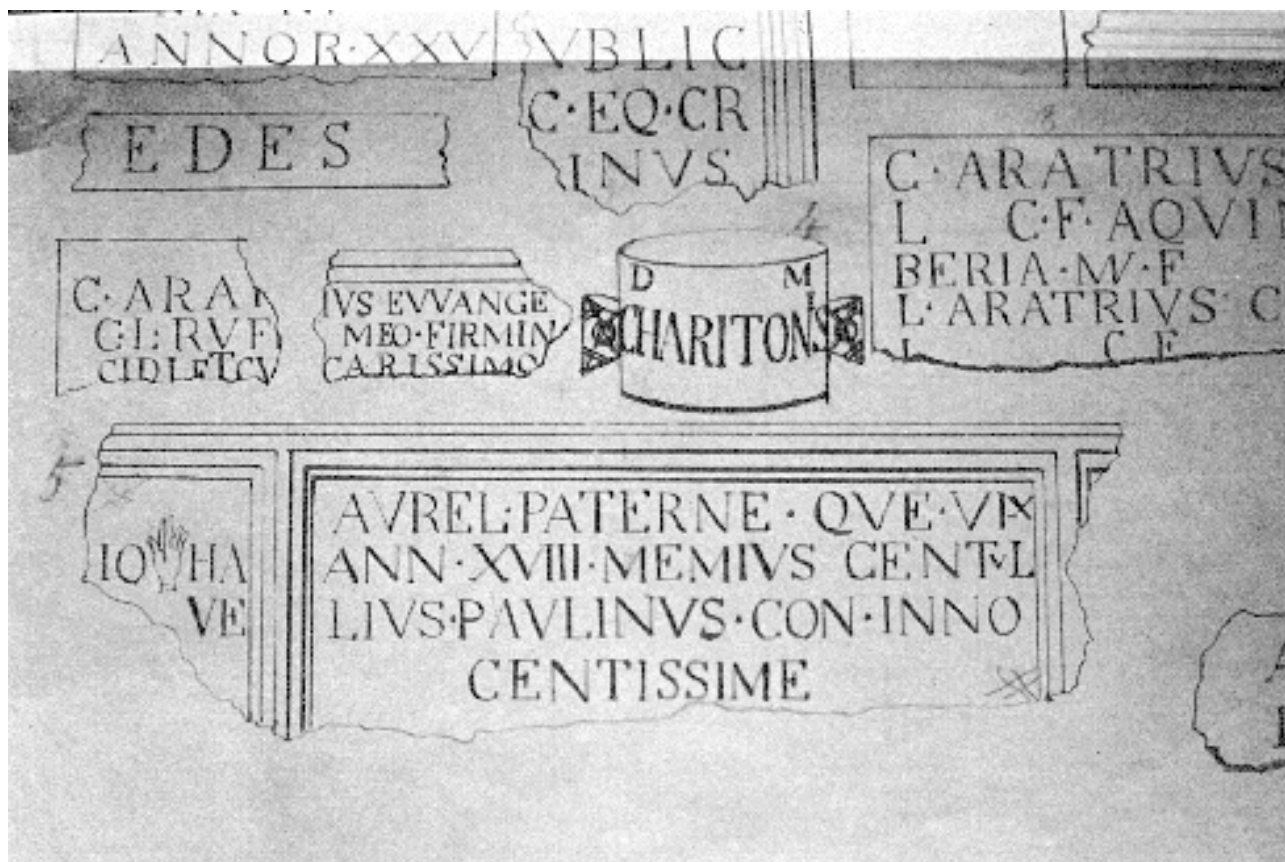 ANNOR·XXV
VBLIC
C·EQ·CR
INVS
EDES
C·ARATRIVS
L C·F·AQVI
BERIA·M·F
L·ARATRIVS C
L C F
C·ARAT
C·L·RVF
IVS EVVANGE
MEO·FIRMIN
CARISSIMO
D M
CHARITONIS
4
5
IO HA
VE
AVREL·PATERNE·QVE·VIX
ANN·XVIII·MEMIVS CENTVL
LIVS·PAVLINVS·CON·INNO
CENTISSIME